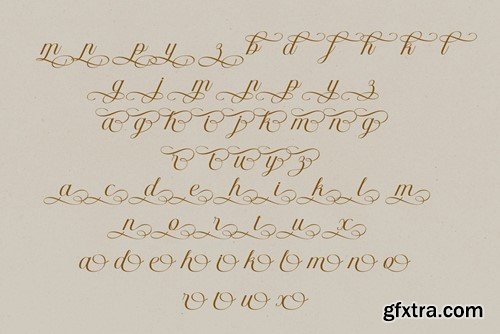 m n p y z b d f h k l
g j m n p y z
a g h t p k m n g
v t w y z
a c d e h i k l m
n o r t u x
a d e h i k l m n o
r o u x
gfxtra.com